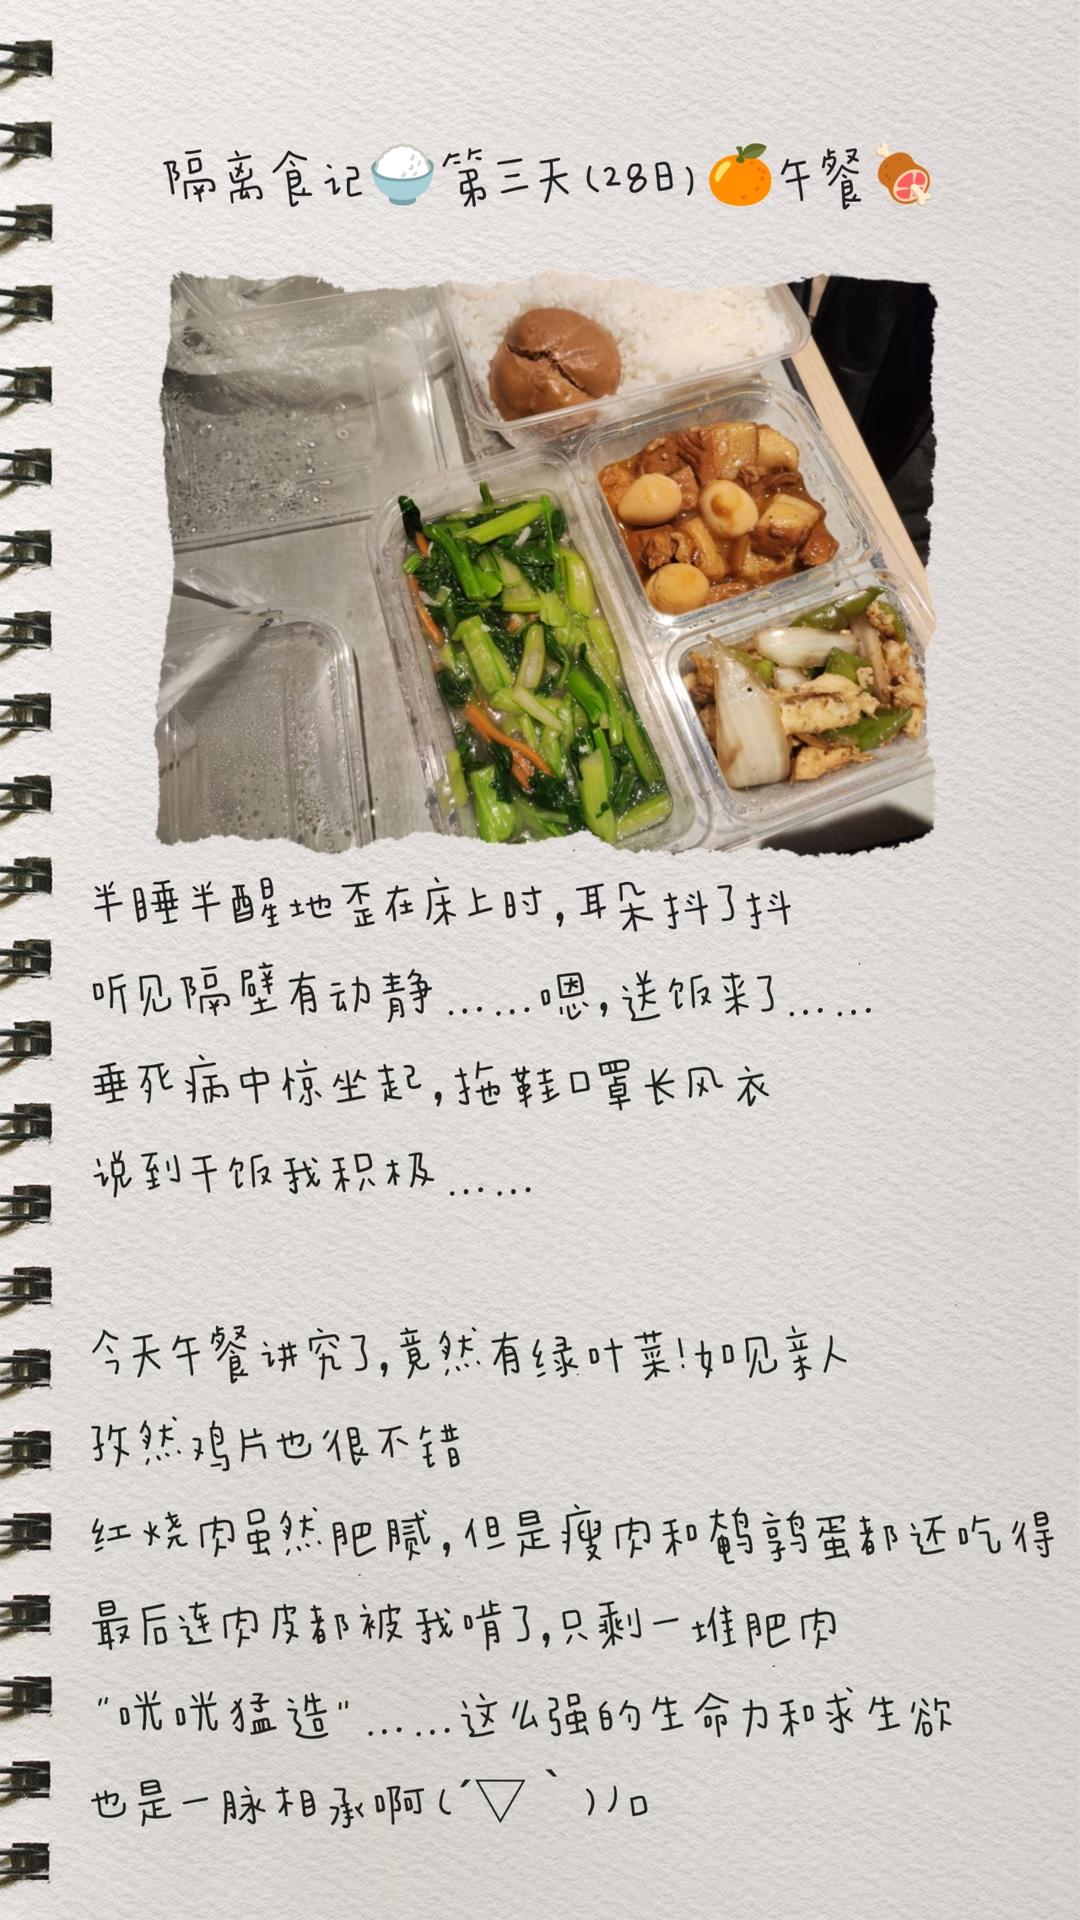 隔离食记🍚第三天(28日)🍊午餐🍖
半睡半醒地歪在床上时,耳朵抖了抖
听见隔壁有动静……嗯,送饭来了……
垂死病中惊坐起,拖鞋口罩长风衣
说到干饭我积极……
今天午餐讲究了,竟然有绿叶菜!如见亲人
孜然鸡片也很不错
红烧肉虽然肥腻,但是瘦肉和鹌鹑蛋都还吃得
最后连肉皮都被我啃了,只剩一堆肥肉
"咣咣猛造"……这么强的生命力和求生欲
也是一脉相承啊(´▽｀)ﾉロ